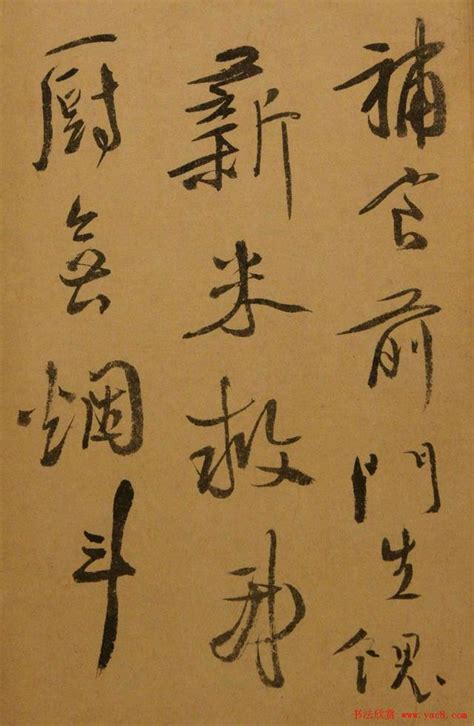 補前門生餽
薪米救我
厨無烟斗
书法欣赏 www.yac8.com